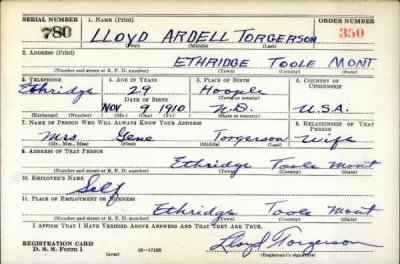 SERIAL NUMBER 1. NAME (Print) ORDER NUMBER
780 LLOYD ARDELL TORGERSON 350
(First) (Middle) (Last)
2. ADDRESS (Print)
ETHRIDGE TOOLE MONT
(Number and street or R. F. D. number) (Town) (County) (State)
3. TELEPHONE 4. AGE IN YEARS 5. PLACE OF BIRTH 6. COUNTRY OF CITIZENSHIP
Ethridge 29 Hoople
DATE OF BIRTH (Town or county)
NOV 9 1910 N.D. U.S.A.
(Exchange) (Number) (Mo.) (Day) (Yr.) (State or country)
7. NAME OF PERSON WHO WILL ALWAYS KNOW YOUR ADDRESS 8. RELATIONSHIP OF THAT PERSON
Mrs Gene Torgerson Wife
(Mr., Mrs., Miss) (First) (Middle) (Last)
9. ADDRESS OF THAT PERSON
Ethridge Toole Mont
(Number and street or R. F. D. number) (Town) (County) (State)
10. EMPLOYER'S NAME
Self
11. PLACE OF EMPLOYMENT OR BUSINESS
Ethridge Toole Mont
(Number and street or R. F. D. number) (Town) (County) (State)
I AFFIRM THAT I HAVE VERIFIED ABOVE ANSWERS AND THAT THEY ARE TRUE.
REGISTRATION CARD
D. S. S. Form 1 (over) 16—17105 Lloyd Torgerson
(Registrant's signature)